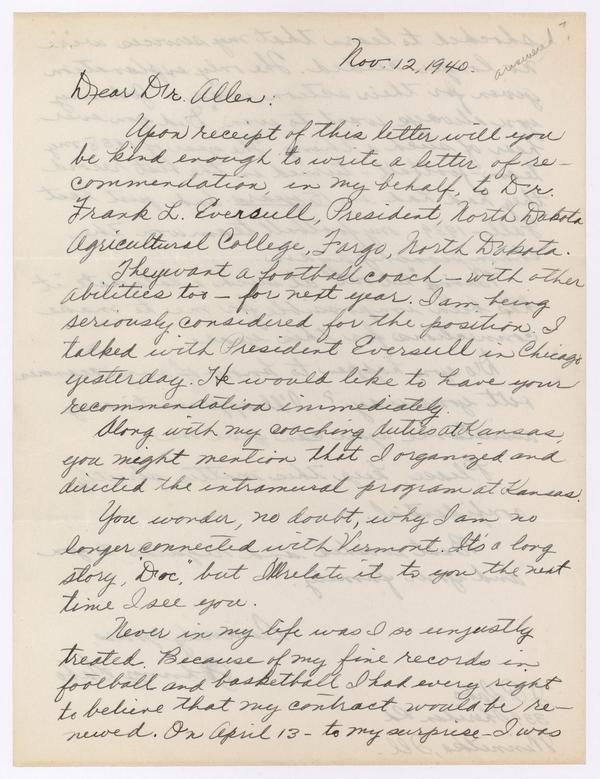 answered ?
Nov. 12, 1940.
Dear Dr. Allen:
Upon receipt of this letter will you
be kind enough to write a letter of re-
commendation, in my behalf, to Dr.
Frank L. Eversull, President, North Dakota
Agricultural College, Fargo, North Dakota.
They want a football coach - with other
abilities too - for next year. I am being
seriously considered for the position. I
talked with President Eversull in Chicago
yesterday. He would like to have your
recommendation immediately.
Along with my coaching duties at Kansas,
you might mention that I organized and
directed the intramural program at Kansas.
You wonder, no doubt, why I am no
longer connected with Vermont. It's a long
story, "Doc", but I'll relate it to you the next
time I see you.
Never in my life was I so unjustly
treated. Because of my fine records in
football and basketball I had every right
to believe that my contract would be re-
newed. On April 13 - to my surprise - I was